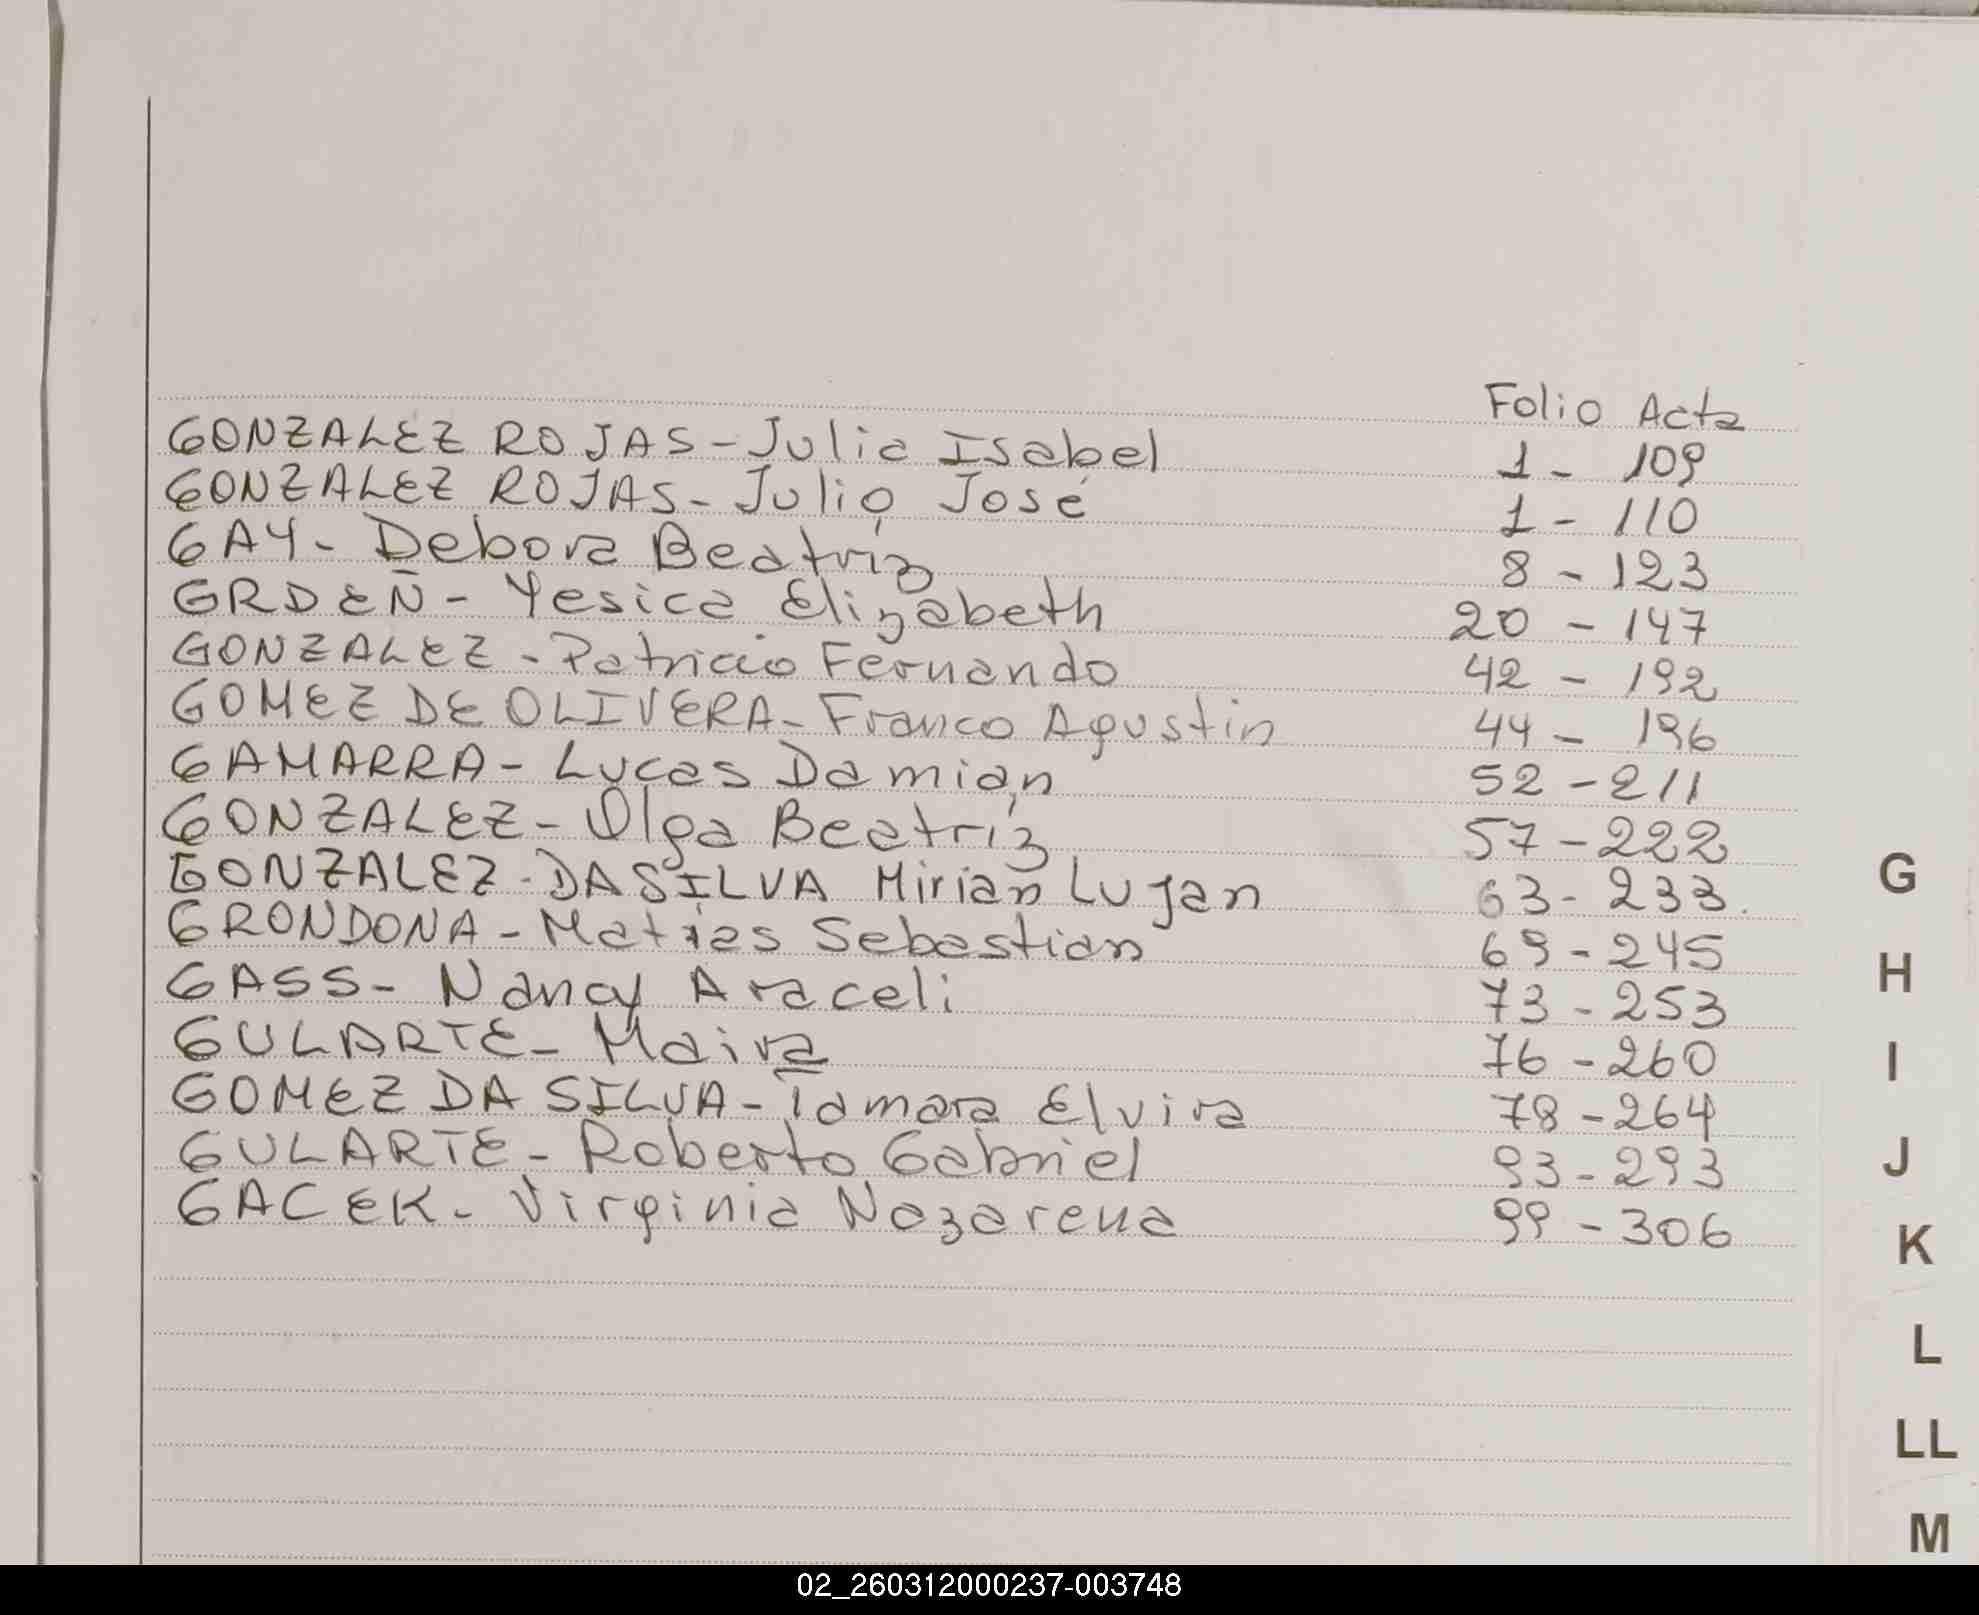 Folio Acta
GONZALEZ ROJAS - Julia Isabel 1 - 109
GONZALEZ ROJAS - Julio José 1 - 110
GAY - Debora Beatriz 8 - 123
GRDEÑ - Yesica Elizabeth 20 - 147
GONZALEZ - Patricio Fernando 42 - 192
GOMEZ DE OLIVERA - Franco Agustin 44 - 196
GAMARRA - Lucas Damian 52 - 211
GONZALEZ - Olga Beatriz 57 - 222
GONZALEZ - DA SILVA Mirian Lujan 63 - 233
GRONDONA - Matias Sebastian 69 - 245
GASS - Nancy Araceli 73 - 253
GULARTE - Maira 76 - 260
GOMEZ DA SILVA - Tamara Elvira 78 - 264
GULARTE - Roberto Gabriel 93 - 293
GACEK - Virginia Nazarena 99 - 306
G
H
I
J
K
L
LL
M
02_260312000237-003748